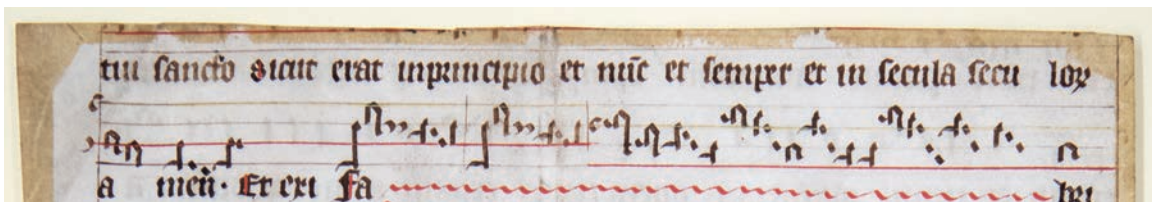 tui sancto sicut erat inprincipio et nūc et semper et in secula secu lorꝝ
a men· Et exi Fa bri